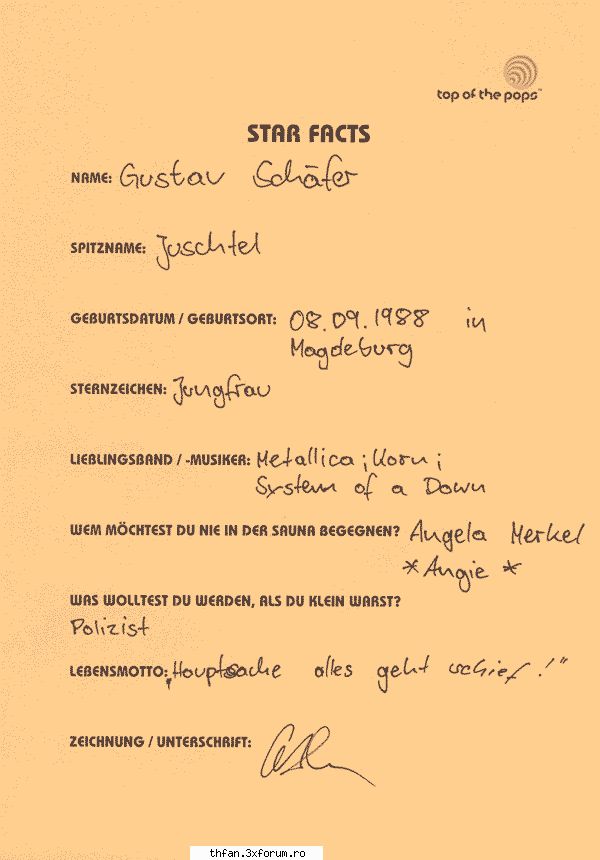 top of the pops™
STAR FACTS
NAME: Gustav Schäfer
SPITZNAME: Juschtel
GEBURTSDATUM / GEBURTSORT: 08.09.1988 in
Magdeburg
STERNZEICHEN: Jungfrau
LIEBLINGSBAND / -MUSIKER: Metallica; Korn;
System of a Down
WEM MÖCHTEST DU NIE IN DER SAUNA BEGEGNEN? Angela Merkel
*Angie *
WAS WOLLTEST DU WERDEN, ALS DU KLEIN WARST?
Polizist
LEBENSMOTTO: „Hauptsache alles geht schief!"
ZEICHNUNG / UNTERSCHRIFT:
thfan.3xforum.ro